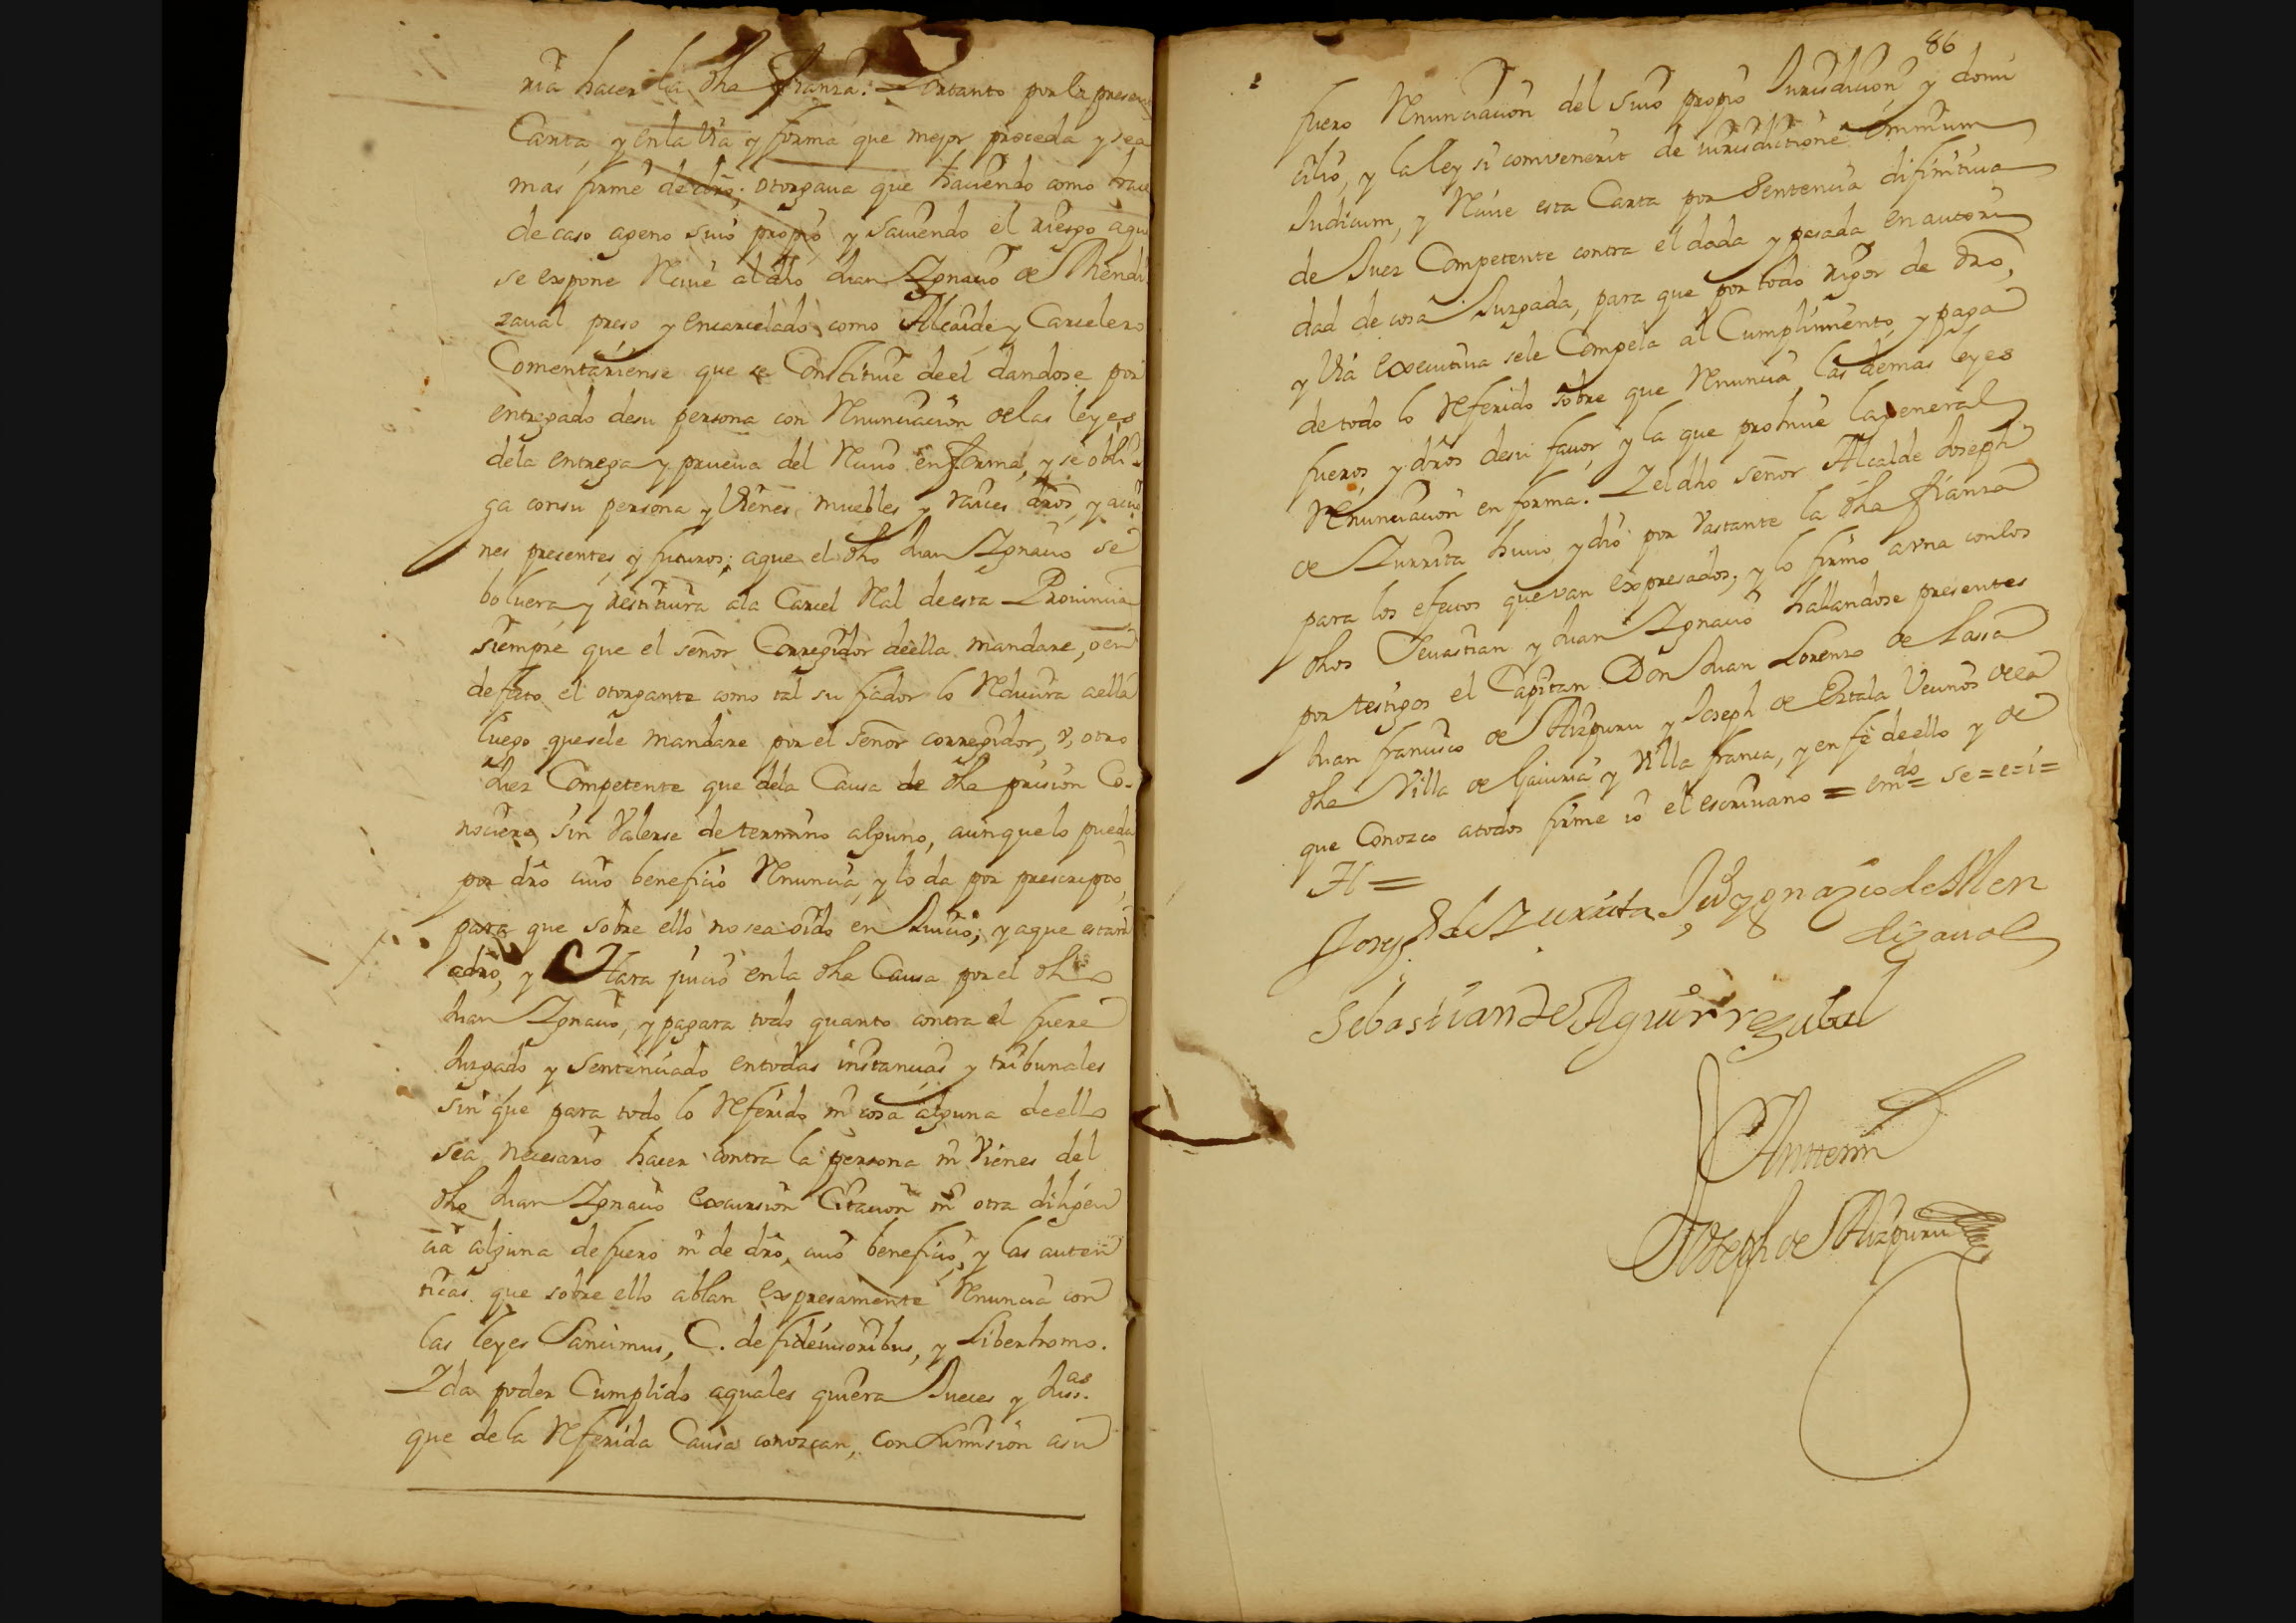 ria hacer la dha fianza. = Portanto por la presente
Carta, y en la via y forma que mejor proceda y sea
mas firme de dro; otorgaua que haciendo como hace
de caso ageno suio propio y sauiendo el riesgo aque
se expone Reciue al dho Juan Ygnacio de Mendi
zaual preso y encarcelado como Alcaide y Carcelero
Comentariense que se Constituie de el dandose por
entregado desu persona con Renunciacion delas leyes
dela entrega y prueua del Reciuo en forma, y se obli-
ga consu persona y Vienes muebles y raices dros, y accio
nes presentes y futuros; aque el dho Juan Ygnacio se
boluera y restituira ala Carcel Real deesta Prouincia
siempre que el señor Corregidor deella mandare, o en
defecto el otorgante como tal su fiador lo Reducira aella
luego quesele mandare por el señor corregidor, v, otro
Juez Competente que dela Causa de dha prision Co-
nociere, sin Valerse de termino alguno, aunque lo pueda
por dro cuio beneficio Renuncia, y lo da por prescripto,
para que sobre ello no sea oido en Juicio; y aque estara
adro, y Hara juicio en la dha Causa por el dho
Juan Ygnacio, y pagara todo quanto contra el fuere
Juzgado y Sentenciado entodas instancias y tribunales
sin que para todo lo Referido ni cosa alguna deello
sea necesario hacer contra la persona ni Vienes del
dho Juan Ygnacio excursion Citacion ni otra diligen
cia alguna de fuero ni de dro, cuio beneficio, y las auten
ticas que sobre ello ablan expresamente Renuncia con
las leyes Sancimus, C. de fideiusoribus, y Liberhomo.
Y da poder Cumplido aquales quiera Jueces y Juss.as
que de la Referida Causa conozcan, con Sumision asu
86
fuero Renunciacion del suio propio Jurisdicion y domi
cilio, y la ley si convenerit de iurisdictione omnium
Judicum, y Reciue esta Carta por Sentencia difinitiua
de Juez Competente contra el dada y pasada en autori
dad de cosa Juzgada, para que por todo rigor de dro,
y Via executiua sele Compela al Cumplimiento y paga
de todo lo Referido sobre que Renuncia las demas leyes
fueros y dros desu fauor, y la que prohiue la general
Renunciacion en forma. Y el dho señor Alcalde Joseph
de Zurrita huuo y dio por Vastante la dha fianza
para los efectos que van expresados; y lo firmo avna conlos
dhos Seuastian y Juan Ygnacio hallandose presentes
por testigos el Capitan Don Juan Lorenzo de Lassa
Juan francisco de Aizpuru y Joseph de Estala Vecinos dela
dha Villa de Gauiria y Villa franca, y en fe deello y de
que Conozco atodos firme io el escriuano = em.do = se = e = i =
H =
Joseph de Zurrita Ju.o ygnazio de Men
dizaual
Sebastian de Aguirrezabal
Antemi
Joseph de Aizpuru